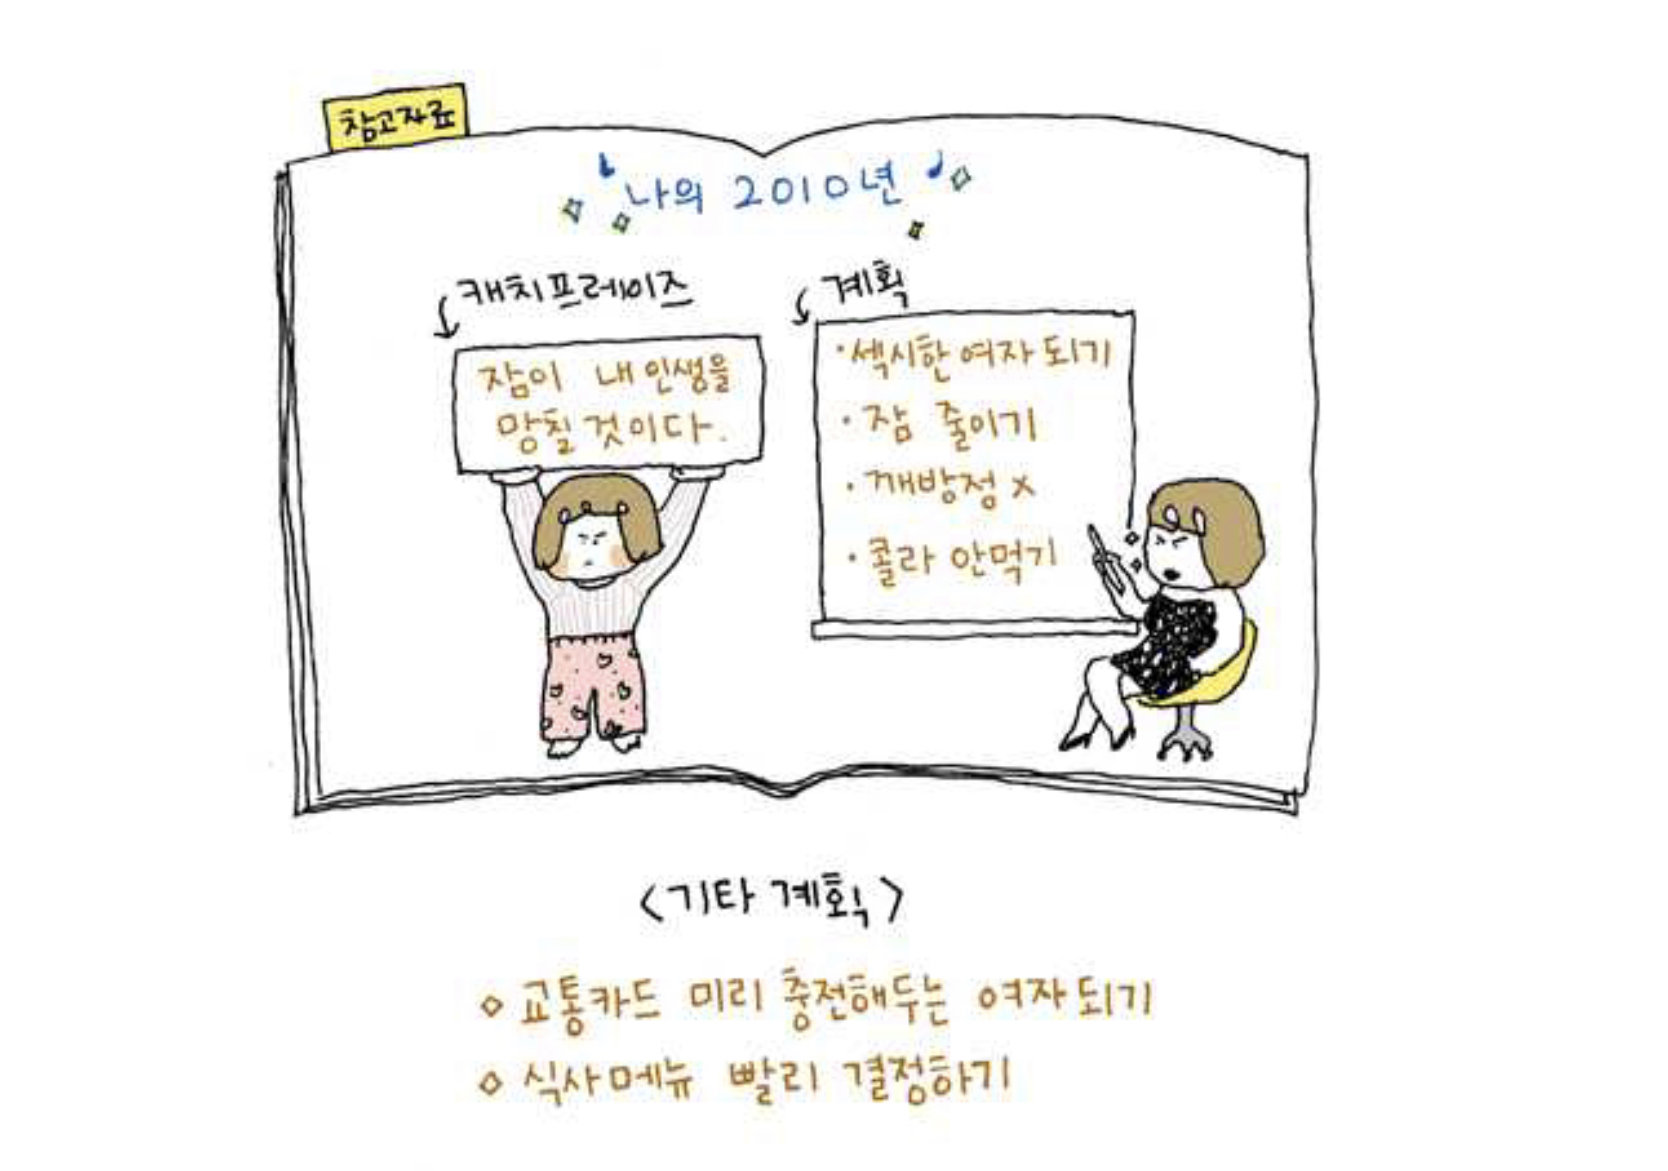 참고자료
나의 2010년
캐치프레이즈
잠이 내 인생을
망칠 것이다.
계획
·섹시한 여자 되기
·잠 줄이기
·깨방정 x
·콜라 안먹기
<기타 계획>
◇ 교통카드 미리 충전해두는 여자 되기
◇ 식사메뉴 빨리 결정하기